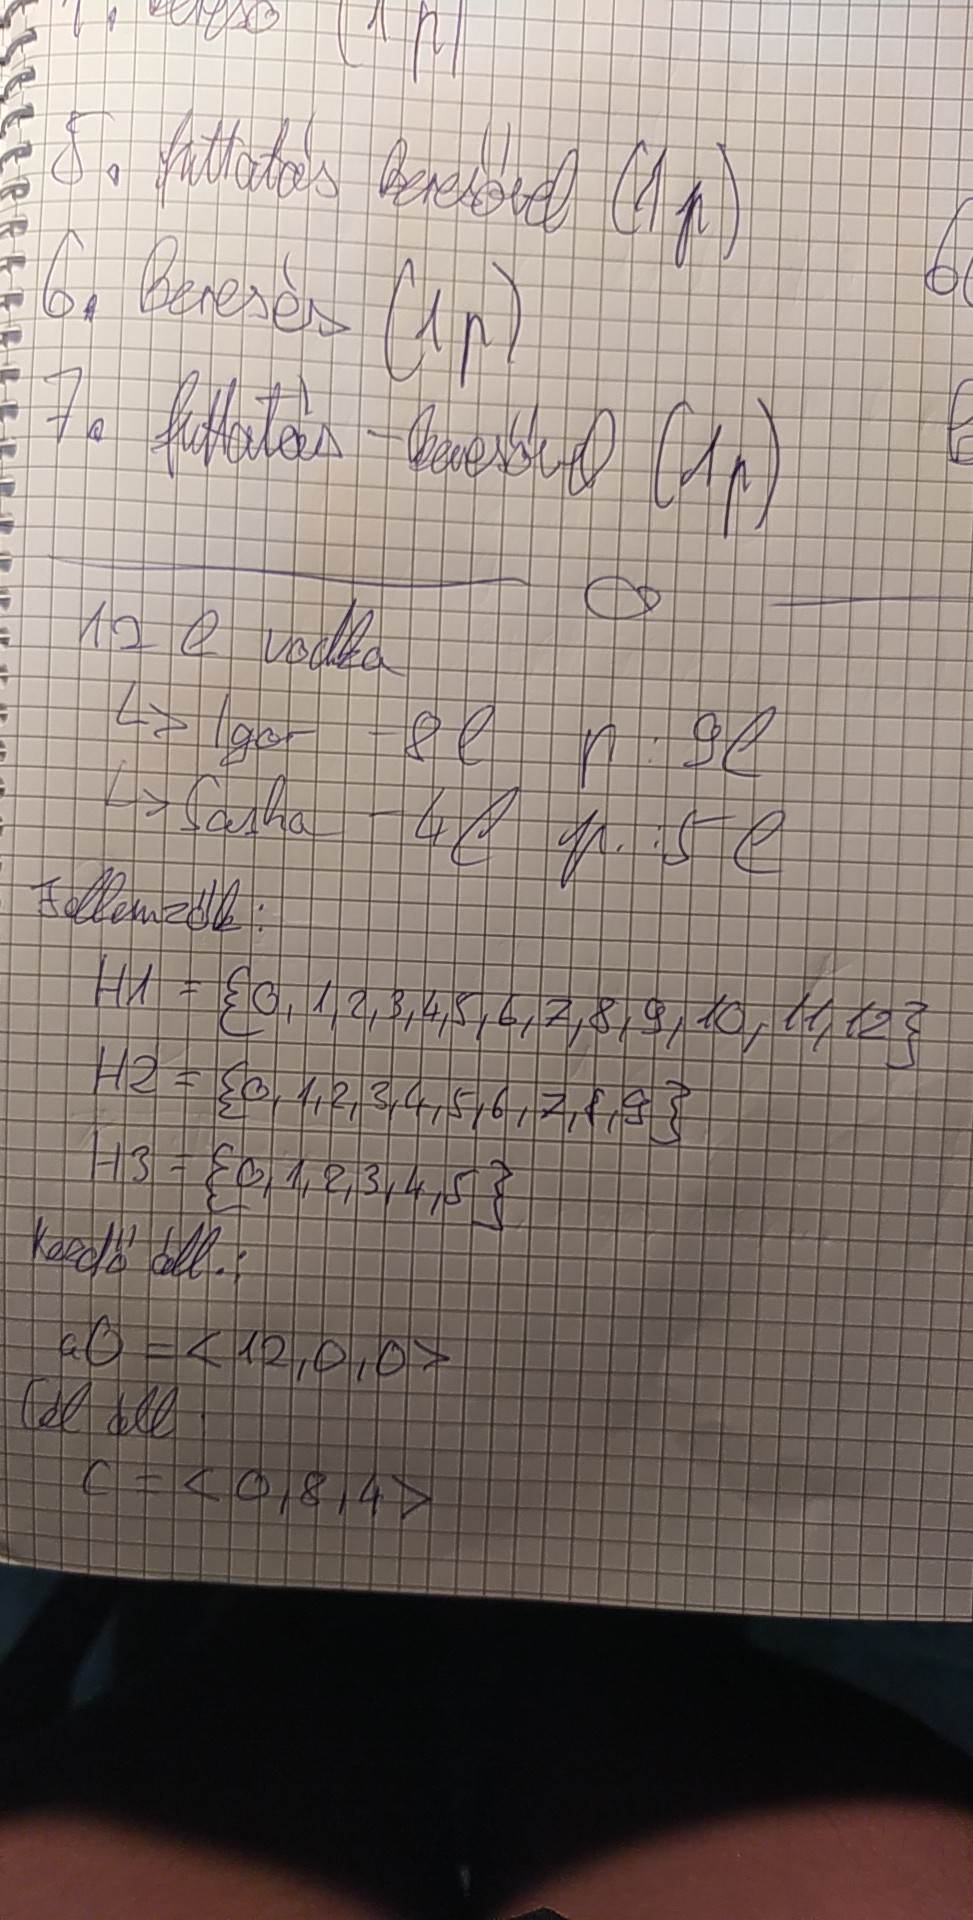 (1p)
5. futtatás keresővel (1p)
6. keresés (1p)
7. futtatás - keresővel (1p)
12 l vodka
↳> Igor - 8l p : 9l
↳> Sasha - 4l p. : 5l
Jellemzők:
H1 = {0,1,2,3,4,5,6,7,8,9,10,11,12}
H2 = {0,1,2,3,4,5,6,7,8,9}
H3 = {0,1,2,3,4,5}
Kezdő áll.:
a0 = <12,0,0>
Cél áll.
C = <0,8,4>